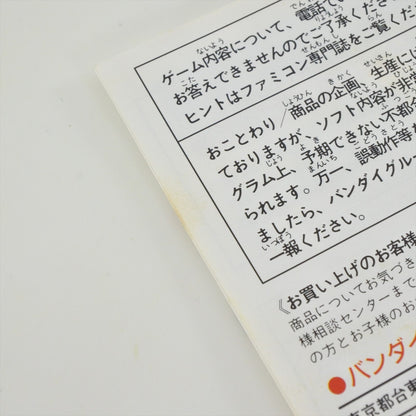 ゲーム内容について、電話で
お答えできませんのでご了承くださ
ヒントはファミコン専門誌をご覧くだ
おことわり/商品の企画、生産に
ておりますが、ソフト内容が非
グラム上、予期できない不都
られます。万一、誤動作等
ましたら、バンダイグル
一報ください。
《お買い上げのお客様
商品についてお気づき
様相談センターまで
の方とお子様のお
●バンダイ
東京都台東